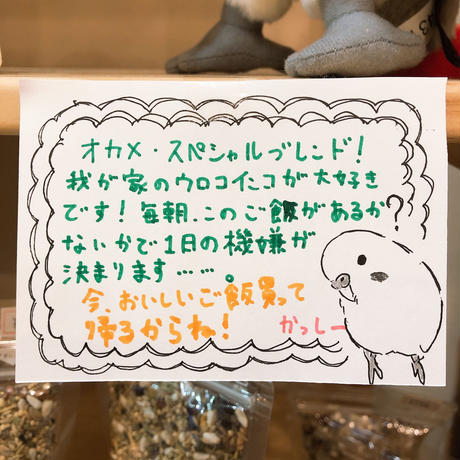 オカメ・スペシャルブレンド！
我が家のウロコインコが大好き
です！毎朝、このご飯があるか
ないかで1日の機嫌が
決まります……。
今、おいしいご飯買って
帰るからね！
かっしー
?